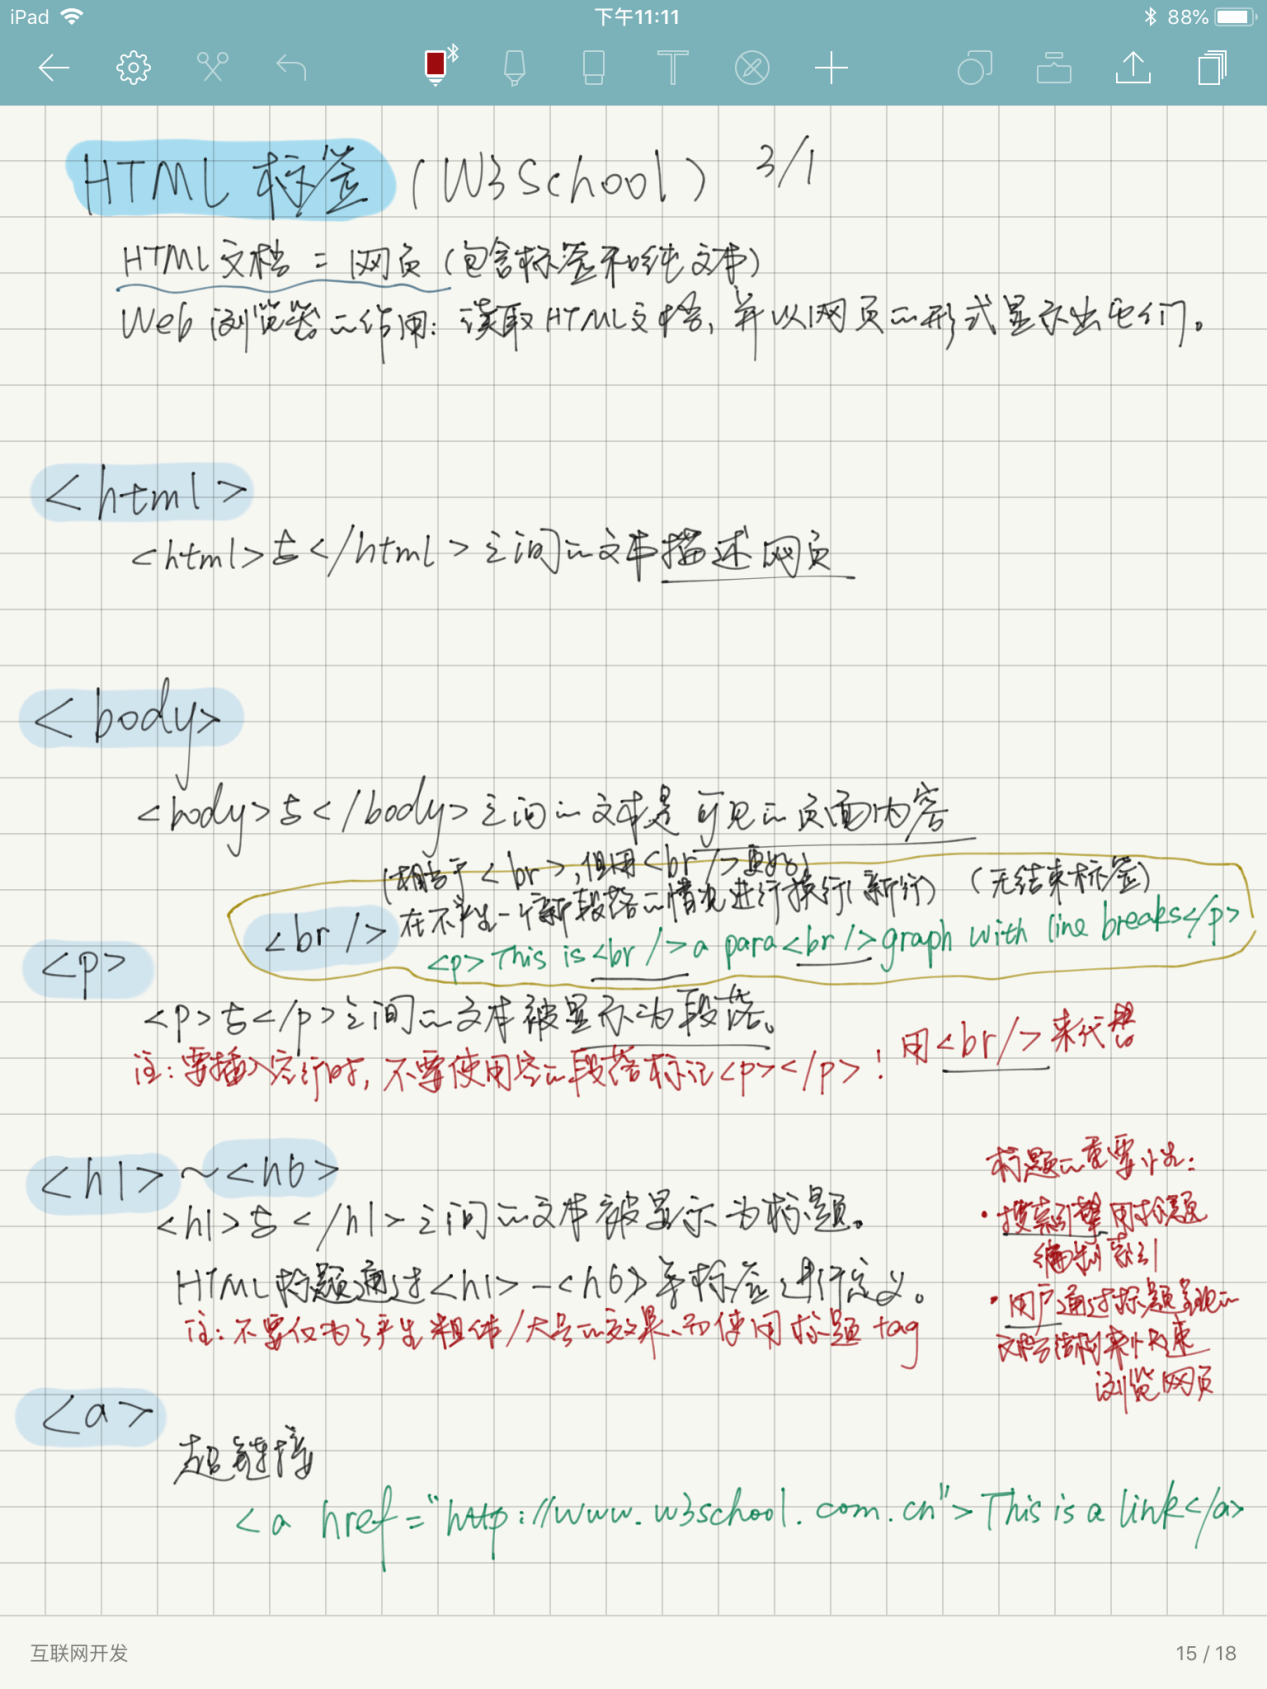 iPad 下午11:11 88%
HTML 标签 (W3School) 3/1
HTML文档 = 网页 (包含标签和纯文本)
Web 浏览器的作用: 读取HTML文档, 并以网页的形式显示出它们。
<html>
<html>与</html>之间的文本描述网页
<body>
<body>与</body>之间的文本是可见的页面内容
(相当于<br>,但用<br/>更好)
<br/> 在不产生一个新段落的情况进行换行(新行) (无结束标签)
<p>This is<br/>a para<br/>graph with line breaks</p>
<p>
<p>与</p>之间的文本被显示为段落。
注: 要插入空行时, 不要使用空的段落标记<p></p>! 用<br/>来代替
<h1>~<h6>
<h1>与</h1>之间的文本被显示为标题。
HTML标题通过<h1>-<h6>等标签进行定义。
注: 不要仅为了产生粗体/大号的效果而使用标题tag
标题的重要性:
·搜索引擎用标题
编制索引
·用户通过标题呈现的
文档结构来快速
浏览网页
<a>
超链接
<a href="http://www.w3school.com.cn">This is a link</a>
互联网开发 15 / 18